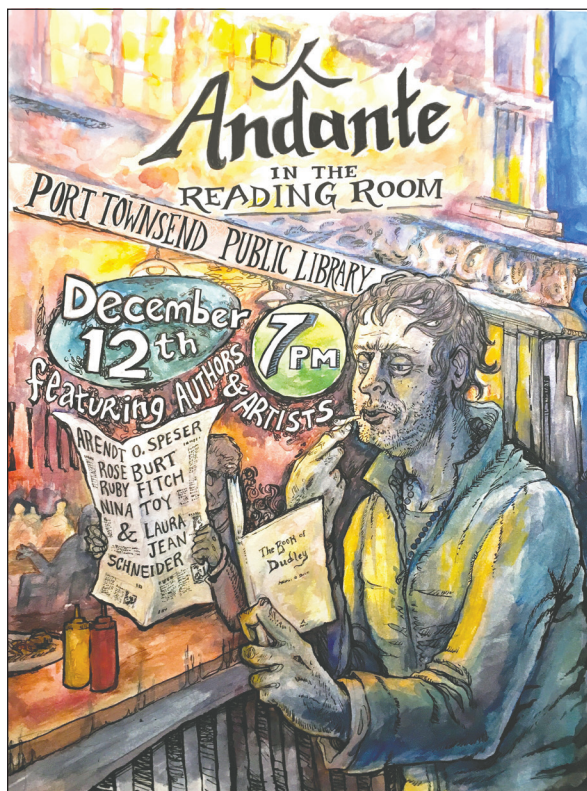 Andante
IN THE
READING ROOM
PORT TOWNSEND PUBLIC LIBRARY
December
12th
7PM
featuring AUTHORS
& ARTISTS
ARENDT O. SPESER
ROSE BURT
RUBY FITCH
NINA TOY
& LAURA
JEAN
SCHNEIDER
The Book of
Dudley